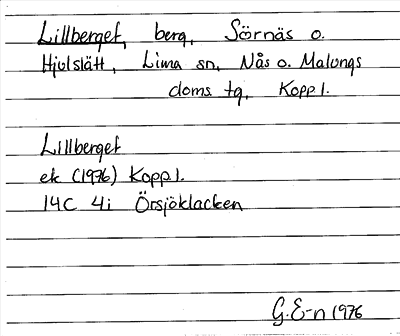 Lillberget, berg, Sörnäs o.
Hjulslätt, Lima sn, Nås o. Malungs
doms tg, Kopp l.
Lillberget
ek (1976) Kopp l.
14C 4i Örsjöklacken
G. E-n 1976